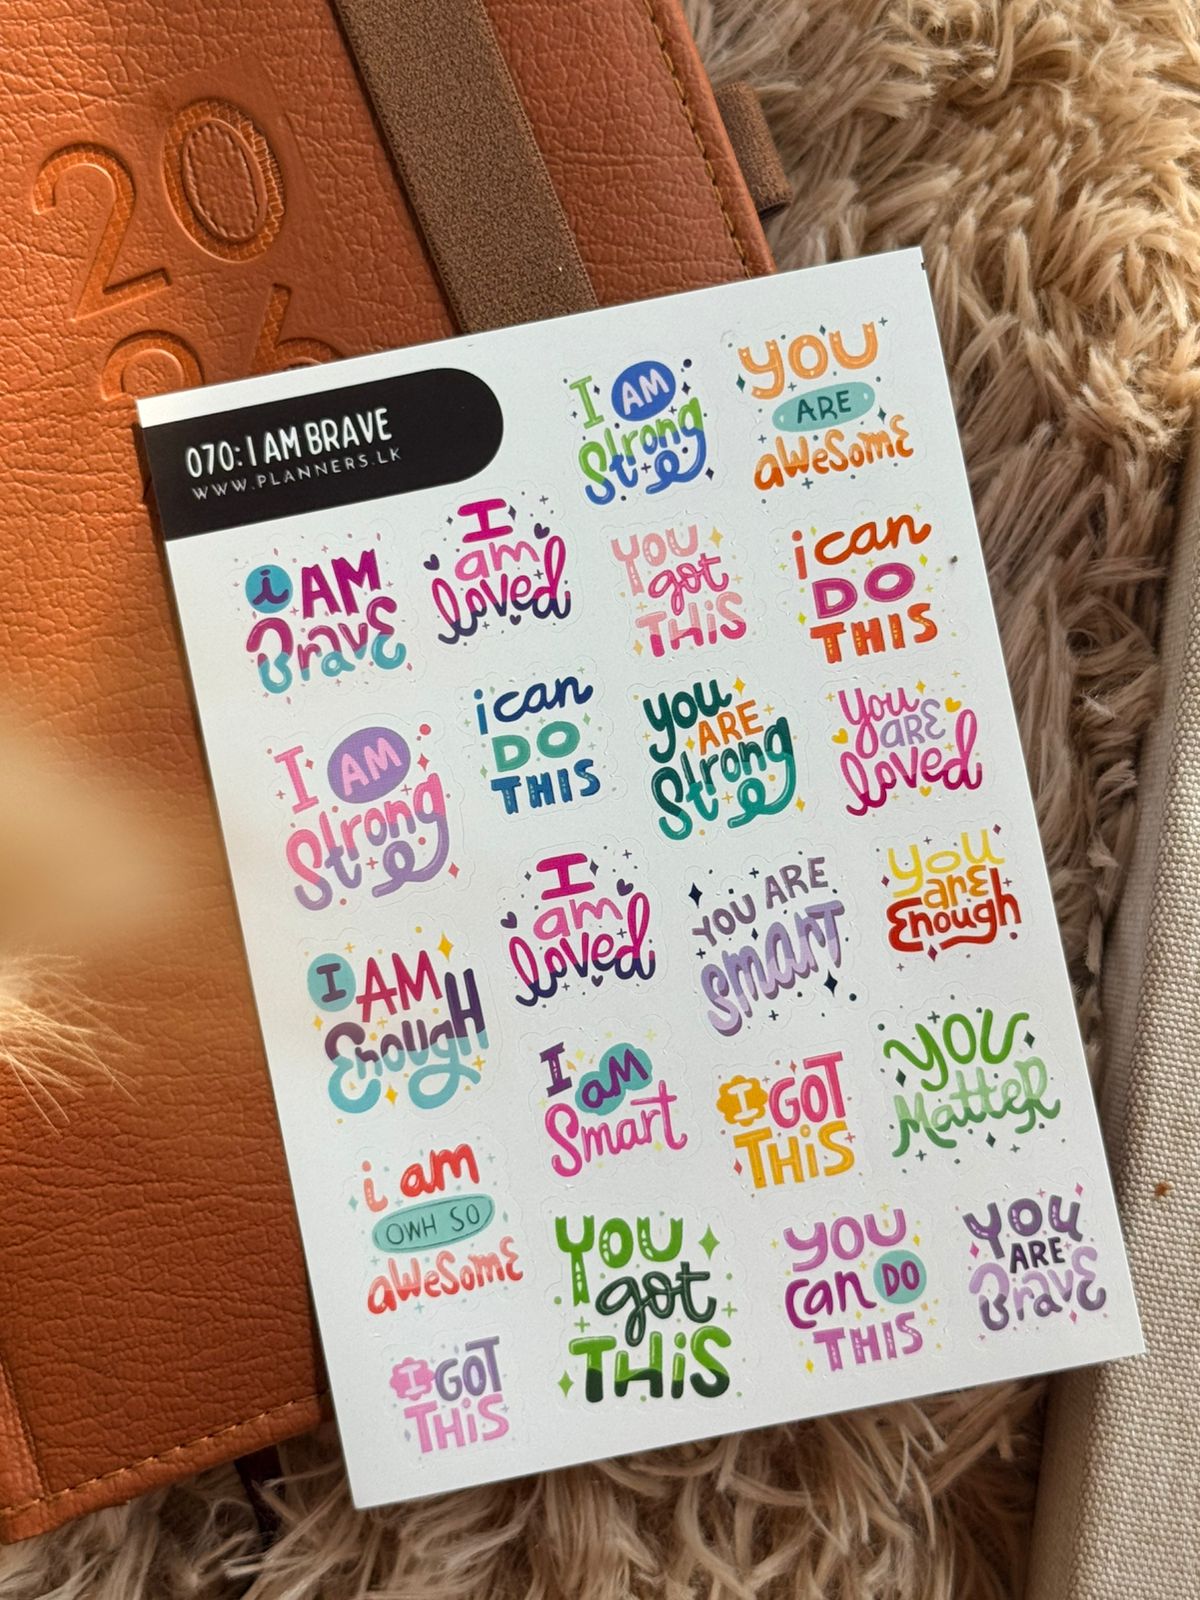 20
26
070: I AM BRAVE
WWW.PLANNERS.LK
I AM
Strong
YOU
ARE
aWeSomE
i AM
BravE
I
am
loved
YOU
got
THiS
i can
DO
THIS
I AM
Strong
i can
DO
THIS
you
ARE
Strong
You
ARE
loved
I
am
loved
YOU ARE
smarT
YOU
arE
Enough
I AM
EnougH
I aM
Smart
I GOT
THiS
YOU
MatteR
i am
OWH SO
aWeSomE
YOU
got
THiS
YOU
can DO
THIS
YOU
ARE
BravE
I GOT
THiS